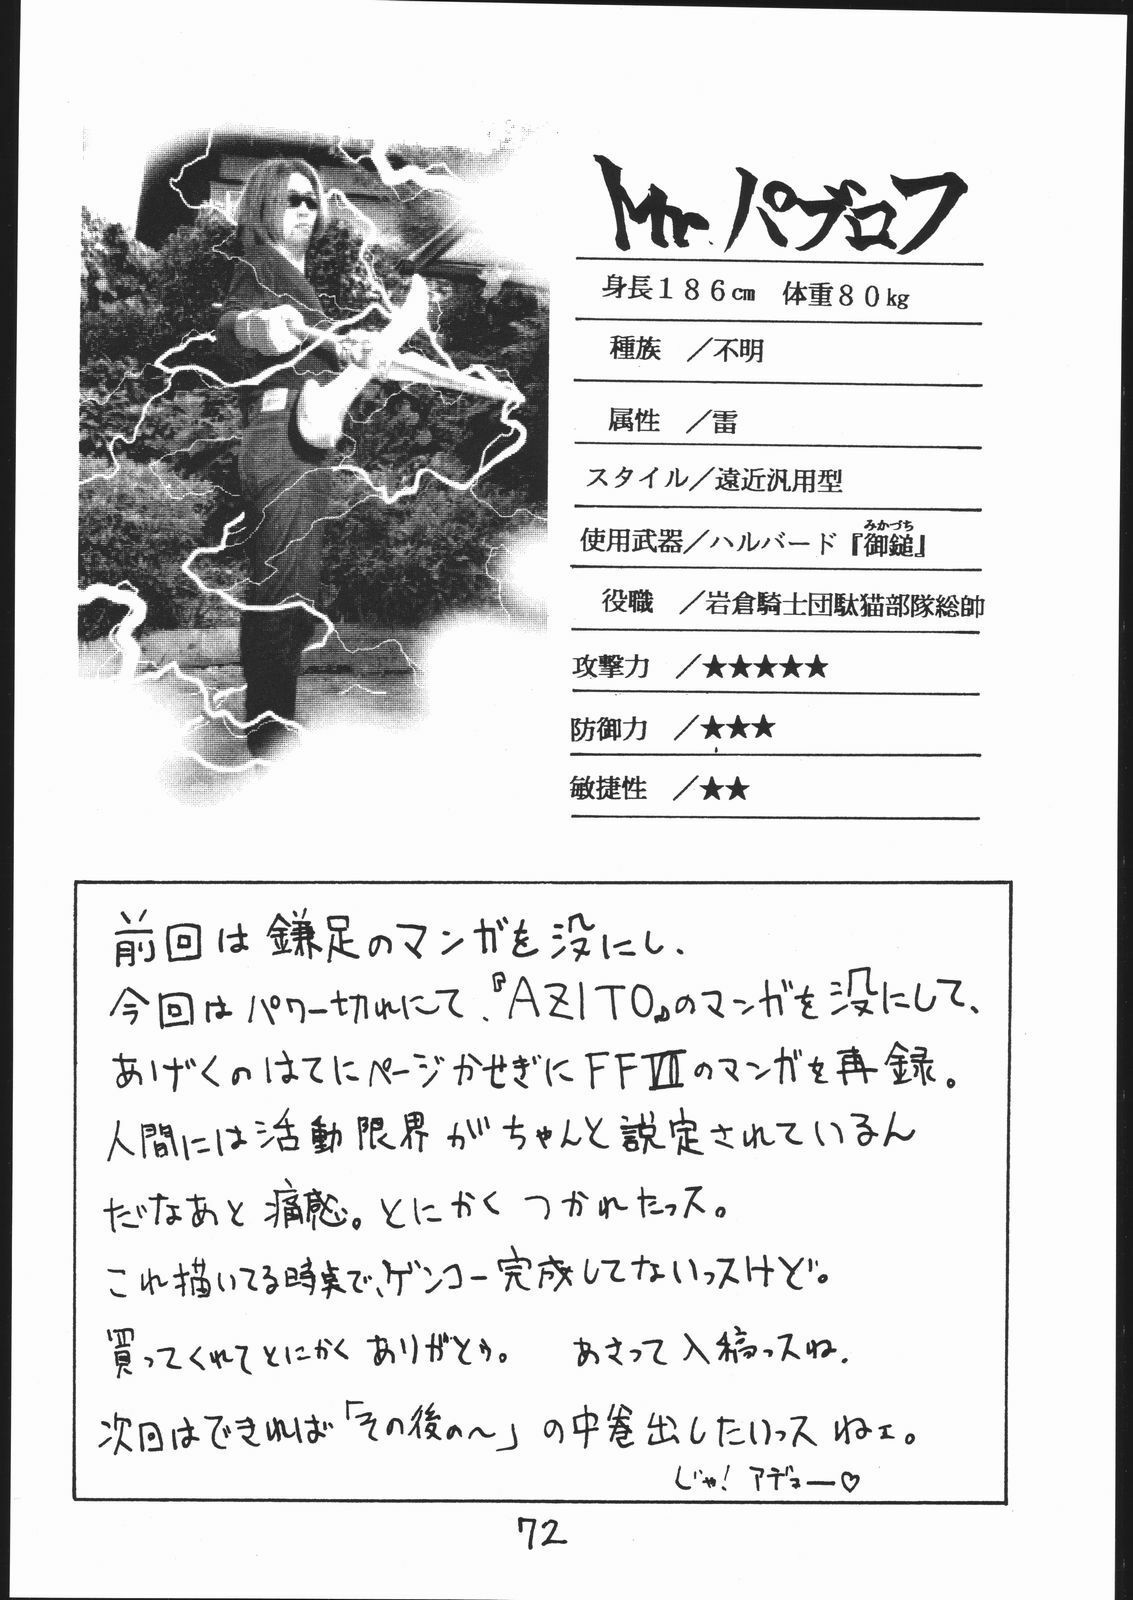 Mr.パブロフ
身長186cm 体重80kg
種族 ／不明
属性 ／雷
スタイル／遠近汎用型
使用武器／ハルバード『御鎚』
みかづち
役職 ／岩倉騎士団駄猫部隊総帥
攻撃力 ／★★★★★
防御力 ／★★★
敏捷性 ／★★
前回は鎌足のマンガを没にし、
今回はパワー切れにて、『AZITO』のマンガを没にして、
あげくのはてにページかせぎにFFⅦのマンガを再録。
人間には活動限界がちゃんと説定されているん
だなあと痛感。とにかくつかれたっス。
これ描いてる時点で、ゲンコー完成してないっスけど。
買ってくれてとにかくありがとぅ。 あさって入稿っスね.
次回はできれば「その後の〜」の中巻出したいっスねェ。
じゃ！アデュー♡
72